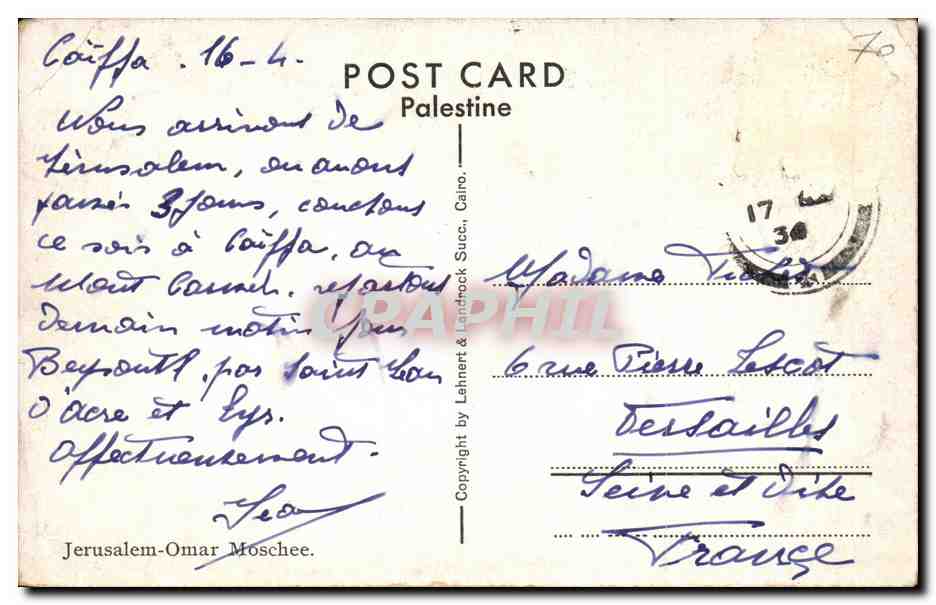 Caïffa. 16-4.
POST CARD
Palestine
70
Nous arrivons de
Jérusalem, où avons
passés 3 jours, couchons
ce soir à Caïffa, au
Mont Carmel, repartons
demain matin pour
Beyrouth, par Saint Jean
d'Acre et Tyr.
Affectueusement.
Jean
Jerusalem-Omar Moschee.
Copyright by Lehnert & Landrock Succ., Cairo.
17
36
Madame
6 rue Pierre Lescot
Versailles
Seine et Oise
France
CPAPHIL